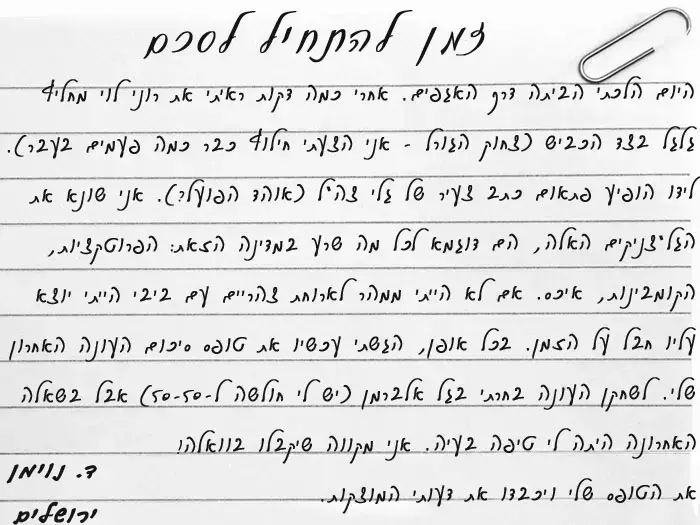 זמן להתחיל לסכם
היום הלכתי הביתה דרך האגפים. אחרי כמה דקות ראיתי את רוני לוי מחליף
גלגל בצד הכביש (צחוק הגורל - אני הצעתי חילוף כבר כמה פעמים בעבר).
לידו הופיע פתאום כתב צעיר של גלי צה"ל (אוהד הפועל?). אני שונא את
הגל"צניקים האלה, הם דוגמא לכל מה שרע במדינה הזאת: הפרוטקציות,
הקומבינות, איכס. אם לא הייתי ממהר לארוחת צהריים עם ביבי הייתי יוצא
עליו חבל על הזמן. בכל אופן, הגשתי עכשיו את טופס סיכום העונה האחרון
שלי. לשחקן העונה בחרתי בגל אלברמן (יש לי חולשה ל-50-50) אבל בשאלה
האחרונה היתה לי טיפה בעיה. אני מקווה שיקבלו בוואלה!
את הטופס שלי ויכבדו את דעותי המוצקות.
ד. נוימן
ירושלים